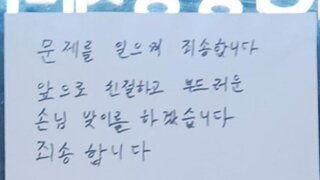 문제를 일으켜 죄송합니다
앞으로 친절하고 부드러운
손님 맞이를 하겠습니다
죄송 합니다